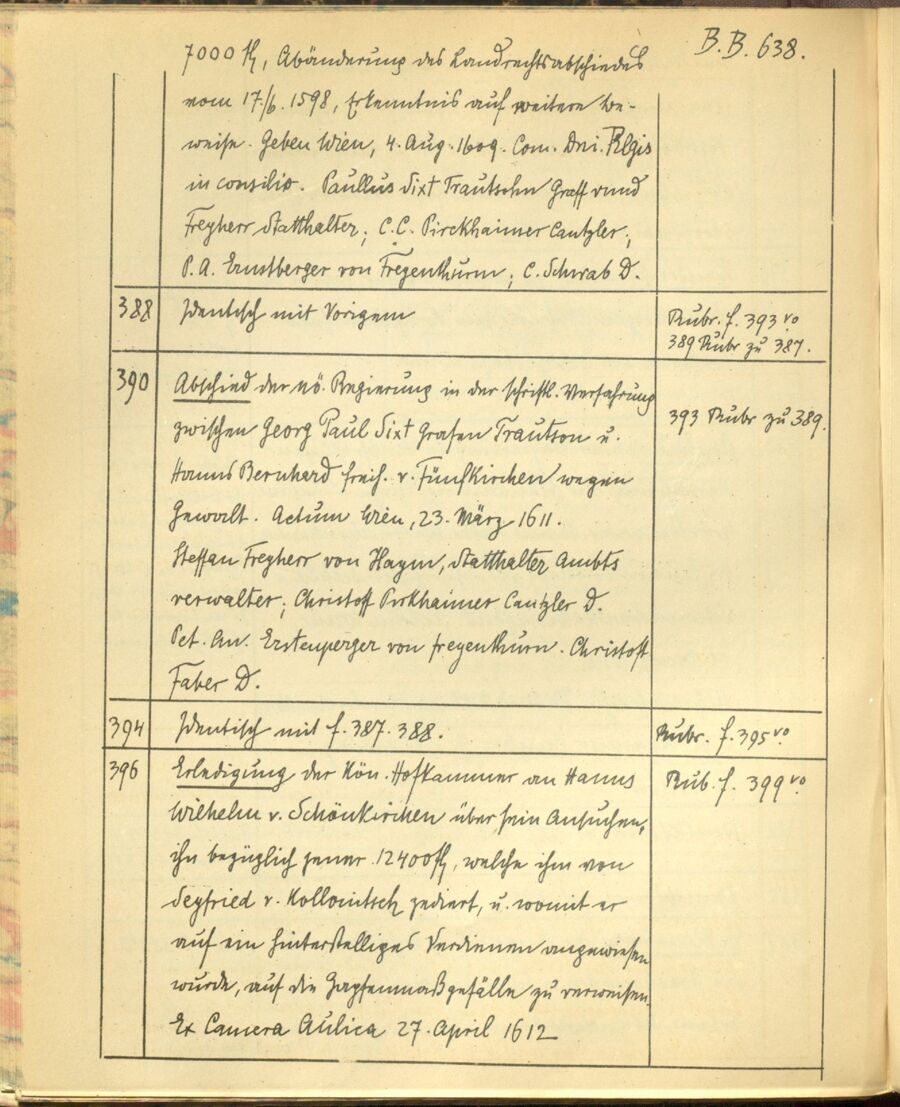 B.B. 638.
7000 fl, Abänderung des Landrechtsabschiedes
vom 17./6. 1598, Erkenntnis auf weitere be-
weise. Geben Wien, 4. Aug. 1609. Com. Dni. Regis
in consilio. Paullus Sixt Trautsohn Graff vnnd
Freyherr Statthalter; C.C. Pirckhaimer Cantzler;
P.A. Ernstberger von Freyenthurm; C. Schwab D.
388 Identisch mit Vorigem
Rubr. f. 393 vo
389 Rubr zu 387.
390 Abschied der nö. Regierung in der schriftl. Verfahrung
393 Rubr zu 389.
zwischen Georg Paul Sixt Grafen Trautson u.
Hanns Bernhard freih. v. Fünfkirchen wegen
Gewalt. Actum Wien, 23. März 1611.
Steffan Freyherr von Haym, Statthalter Ambts
verwalter; Christoff Pirkhaimer Cantzler D.
Pet. An. Erstenperger von freyenthurn. Christoff
Faber D.
394 Identisch mit f. 387. 388. Rubr. f. 395 vo.
396 Erledigung der Kön. Hofkammer an Hanns Rub. f. 399 vo.
Wilhelm v. Schönkirchen über sein Ansuchen,
ihn bezüglich jener 12400 fl, welche ihm von
Seyfried v. Kollonitsch zediert, u. womit er
auf ein hinterstelliges Verdienen angewiesen
wurde, auf die Zapfenmaßgefälle zu verweisen.
Ex Camera Aulica 27. April 1612